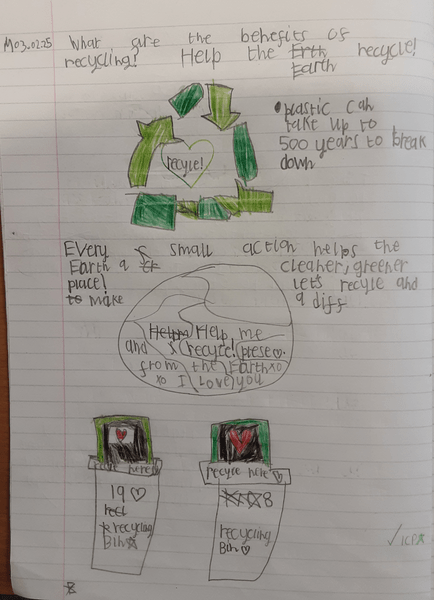 M03.02.25
What are the benefits of
recycling! Help the Erth recycle!
Earth
recycle!
• plastic can
take up to
500 years to break
down
Every S small action helps the
Earth a cleaner, greener
place! lets recyle and
to make a diff
Help Help me
and recycle! plese
from the Earth xo
xo I Love you
recyle here
19
recycling
Bin
recycle here
8
recycling
Bin
✓ICPA